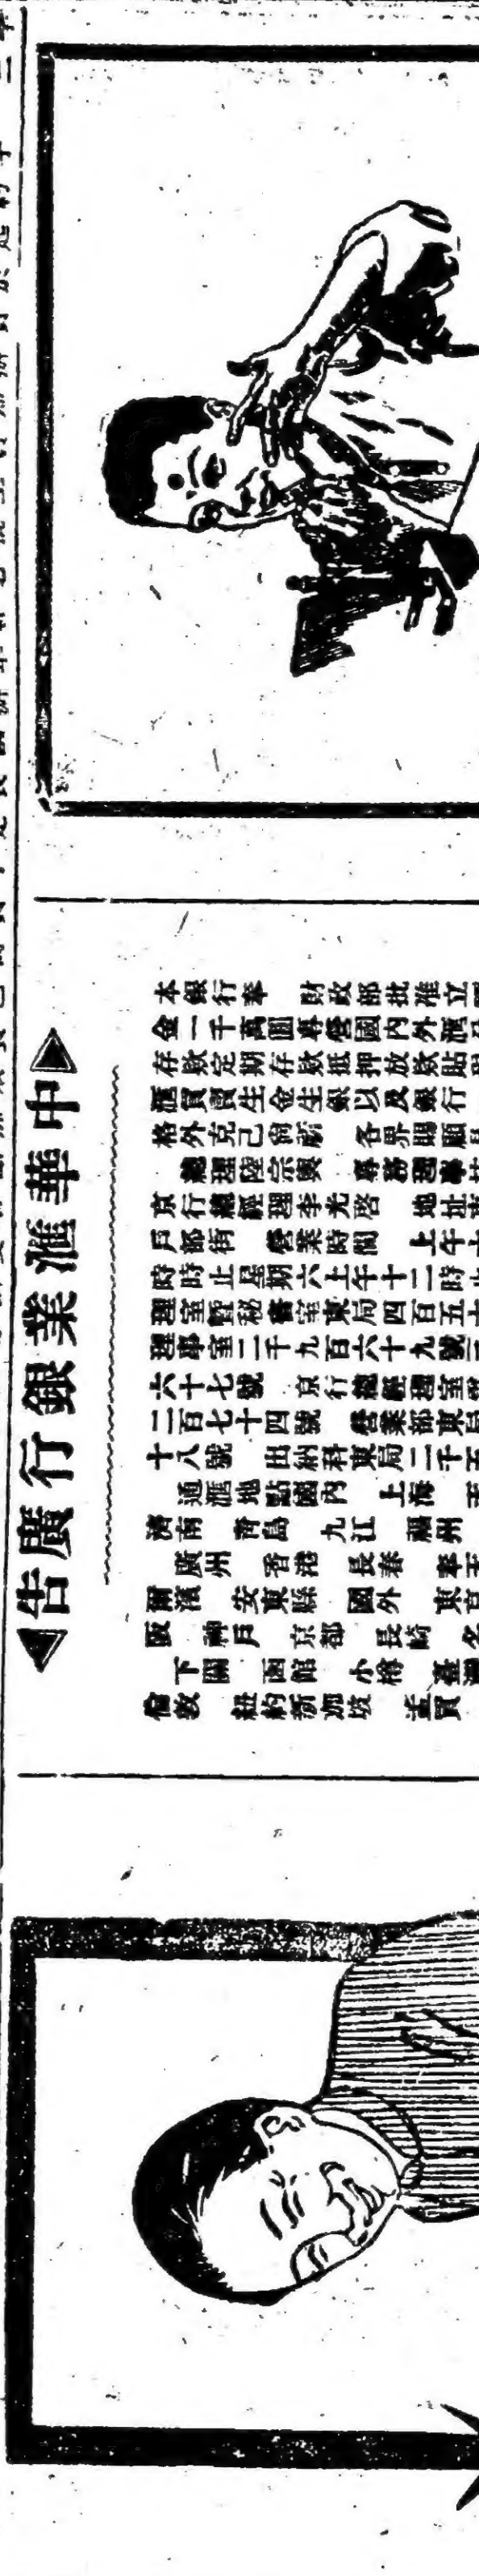 中華滙業銀行廣告
本銀行奉 財政部批准立
金一千萬圓專營國內外滙
存款定期存款抵押放款貼
滙買賣生金生銀以及銀行
格外克己商酌 各界賜顧
總理陸宗輿 專務理事
京行總經理李光啓 地址東
戶部街 營業時間 上午十
時時止星期六上午十二時止
理室暨秘書室東局四百五十
理事室二千九百六十九號
六十七號 京行總經理室
二百七十四號 營業部東局
十八號 出納科東局二千五
通滙地點國內 上海 天
濟南 青島 九江 福州
廣州 香港 長春 奉天
爾濱 安東縣 國外 東京
阪 神戶 京都 長崎 名
下關 函館 小樽 臺灣
倫敦 紐約新加坡 孟買